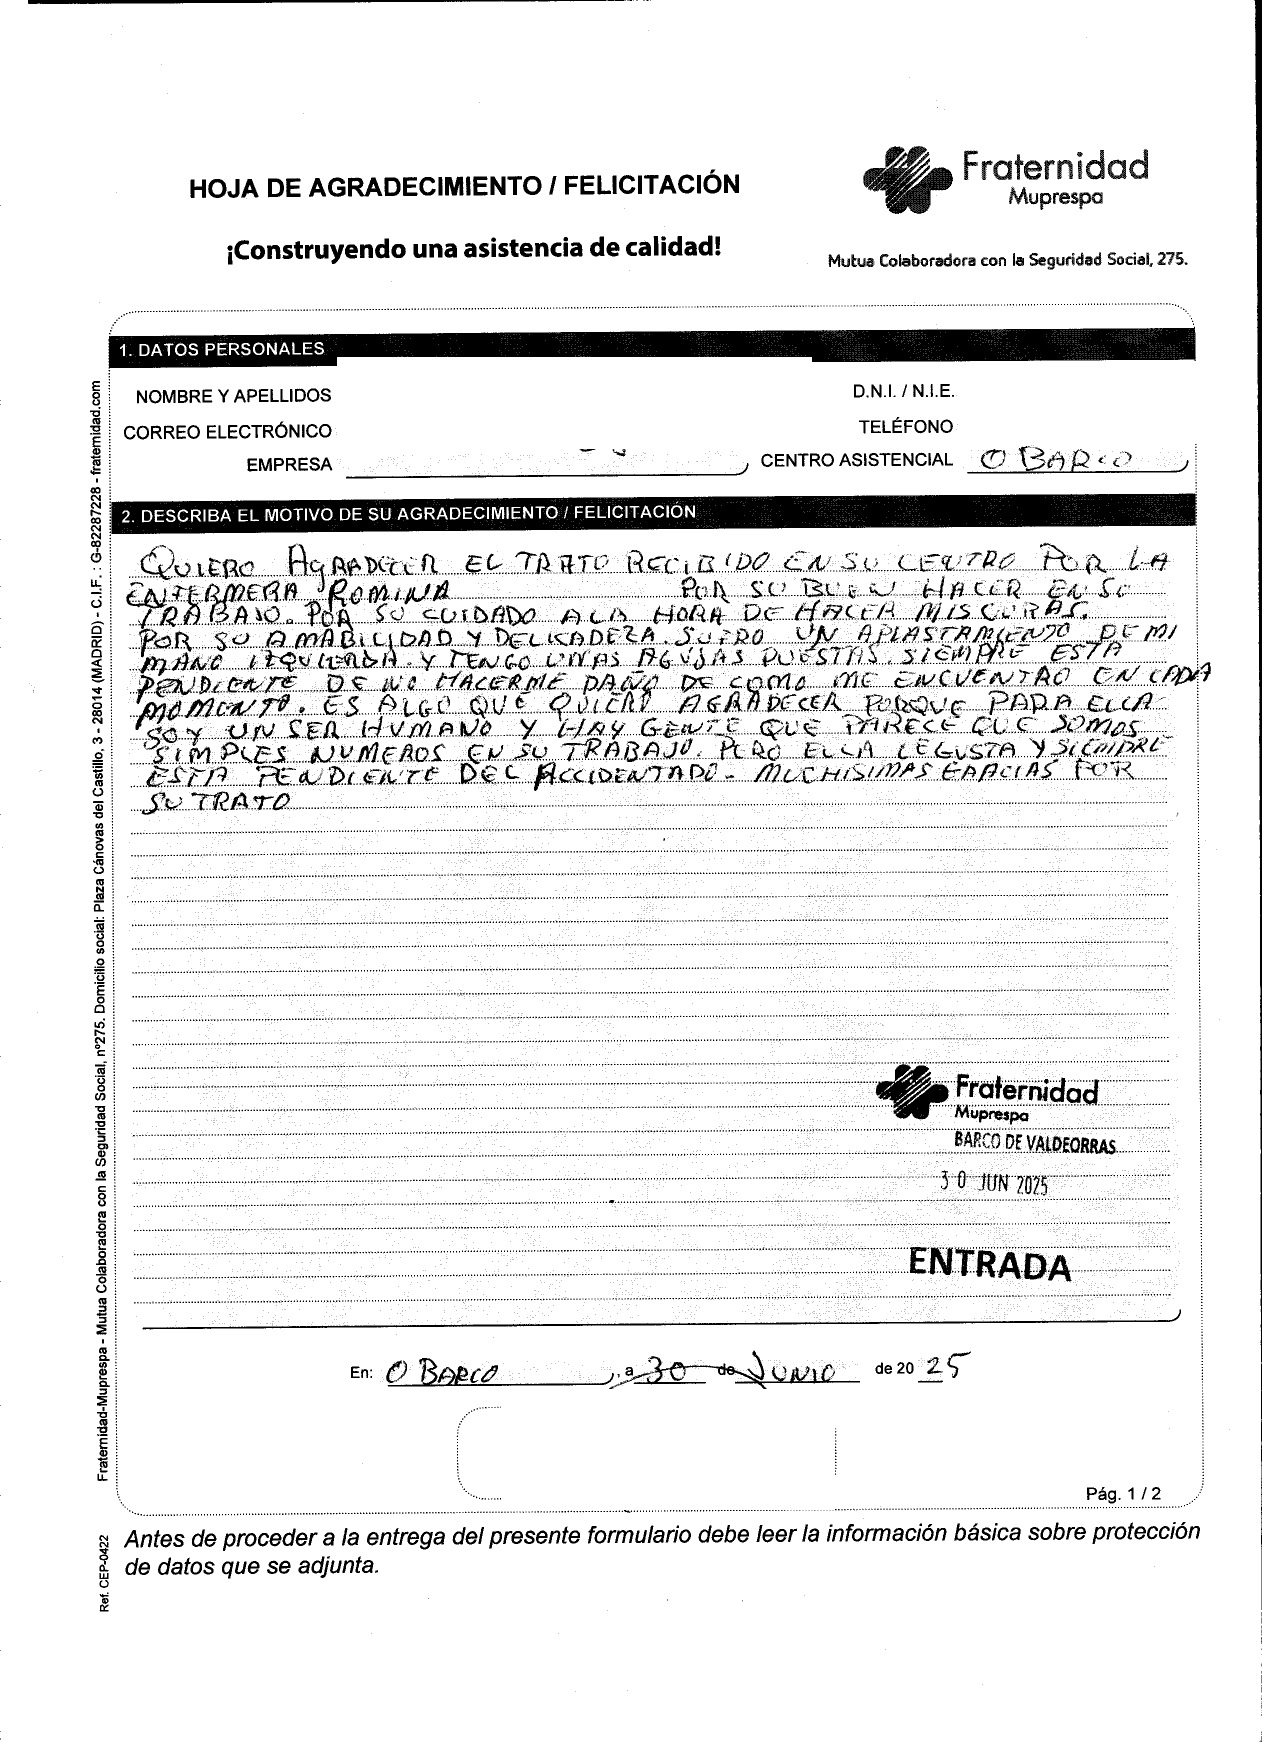 HOJA DE AGRADECIMIENTO / FELICITACIÓN
¡Construyendo una asistencia de calidad!
Fraternidad
Muprespa
Mutua Colaboradora con la Seguridad Social, 275.
1. DATOS PERSONALES
NOMBRE Y APELLIDOS
D.N.I. / N.I.E.
CORREO ELECTRÓNICO
TELÉFONO
EMPRESA
CENTRO ASISTENCIAL O BARCO
2. DESCRIBA EL MOTIVO DE SU AGRADECIMIENTO / FELICITACIÓN
QUIERO AGRADECER EL TRATO RECIBIDO EN SU CENTRO POR LA
ENFERMERA ROMINA POR SU BUEN HACER EN SU
TRABAJO. POR SU CUIDADO A LA HORA DE HACER MIS CURAS.
POR SU AMABILIDAD Y DELICADEZA. SUFRO UN APLASTAMIENTO DE MI
MANO IZQUIERDA. Y TENGO UNAS AGUJAS PUESTAS. SIEMPRE ESTA
PENDIENTE DE NO HACERME DAÑO DE COMO ME ENCUENTRO EN CADA
MOMENTO. ES ALGO QUE QUIERO AGRADECER PORQUE PARA ELLA
SOY UN SER HUMANO Y HAY GENTE QUE PARECE QUE SOMOS
SIMPLES NUMEROS EN SU TRABAJO. PERO ELLA LE GUSTA Y SIEMPRE
ESTA PENDIENTE DEL ACCIDENTADO. MUCHISIMAS GRACIAS POR
SU TRATO
Fraternidad
Muprespa
BARCO DE VALDEORRAS
30 JUN 2025
ENTRADA
En: O BARCO, a 30 de JUNIO de 20 25
Pág. 1 / 2
Antes de proceder a la entrega del presente formulario debe leer la información básica sobre protección
de datos que se adjunta.
Fraternidad-Muprespa - Mutua Colaboradora con la Seguridad Social, nº275. Domicilio social: Plaza Cánovas del Castillo, 3 - 28014 (MADRID) - C.I.F. : G-82287228 - fraternidad.com
Ref. CEP-0422